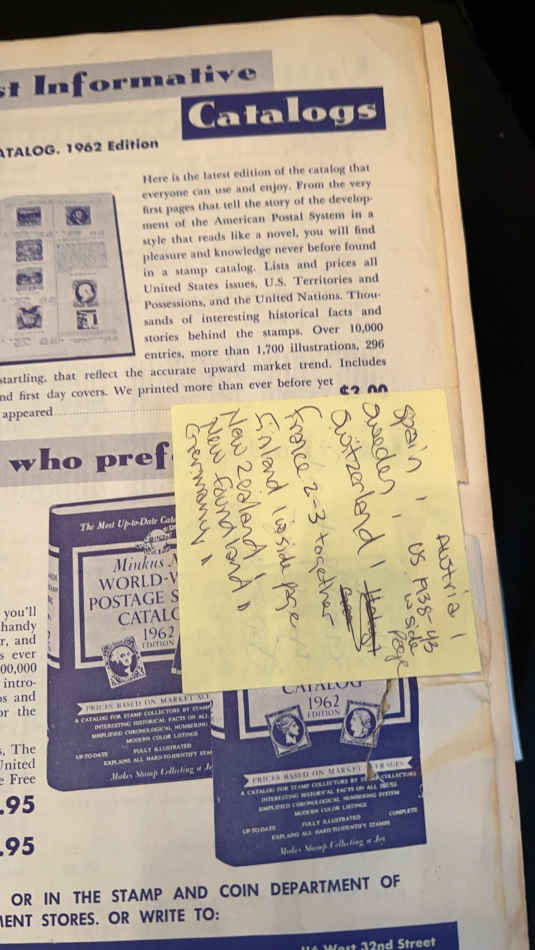 st Informative
Catalogs
ATALOG. 1962 Edition
Here is the latest edition of the catalog that
everyone can use and enjoy. From the very
first pages that tell the story of the develop-
ment of the American Postal System in a
style that reads like a novel, you will find
pleasure and knowledge never before found
in a stamp catalog. Lists and prices all
United States issues, U.S. Territories and
Possessions, and the United Nations. Thou-
sands of interesting historical facts and
stories behind the stamps. Over 10,000
entries, more than 1,700 illustrations, 296
startling, that reflect the accurate upward market trend. Includes
nd first day covers. We printed more than ever before yet
appeared
$2.00
who pref
Spain 1
Sweden 1
Switzerland 1
France 2-3 together
Finland 1 inside page
New Zealand 1
New foundland 11
Germany 11
Austria 1
US 1938-43
inside
page
The Most Up-to-Date Cata
Minkus
WORLD-W
POSTAGE S
CATALO
1962
EDITION
PRICES BASED ON MARKET AVE
A CATALOG FOR STAMP COLLECTORS BY STAMP
INTERESTING HISTORICAL FACTS ON ALL
SIMPLIFIED CHRONOLOGICAL NUMBERING
MODERN COLOR LISTINGS
UP-TO-DATE FULLY ILLUSTRATED
EXPLAINS ALL HARD-TO-IDENTIFY STAM
Makes Stamp Collecting a Jo
CATALOG
1962
EDITION
PRICES BASED ON MARKET AVERAGES
A CATALOG FOR STAMP COLLECTORS BY STAMP COLLECTORS
INTERESTING HISTORICAL FACTS ON ALL ISSUES
SIMPLIFIED CHRONOLOGICAL NUMBERING SYSTEM
MODERN COLOR LISTINGS
UP-TO-DATE FULLY ILLUSTRATED COMPLETE
EXPLAINS ALL HARD-TO-IDENTIFY STAMPS
Makes Stamp Collecting a Joy
you'll
handy
r, and
s ever
00,000
intro-
s and
or the
s, The
United
e Free
.95
.95
OR IN THE STAMP AND COIN DEPARTMENT OF
MENT STORES. OR WRITE TO:
116 West 32nd Street